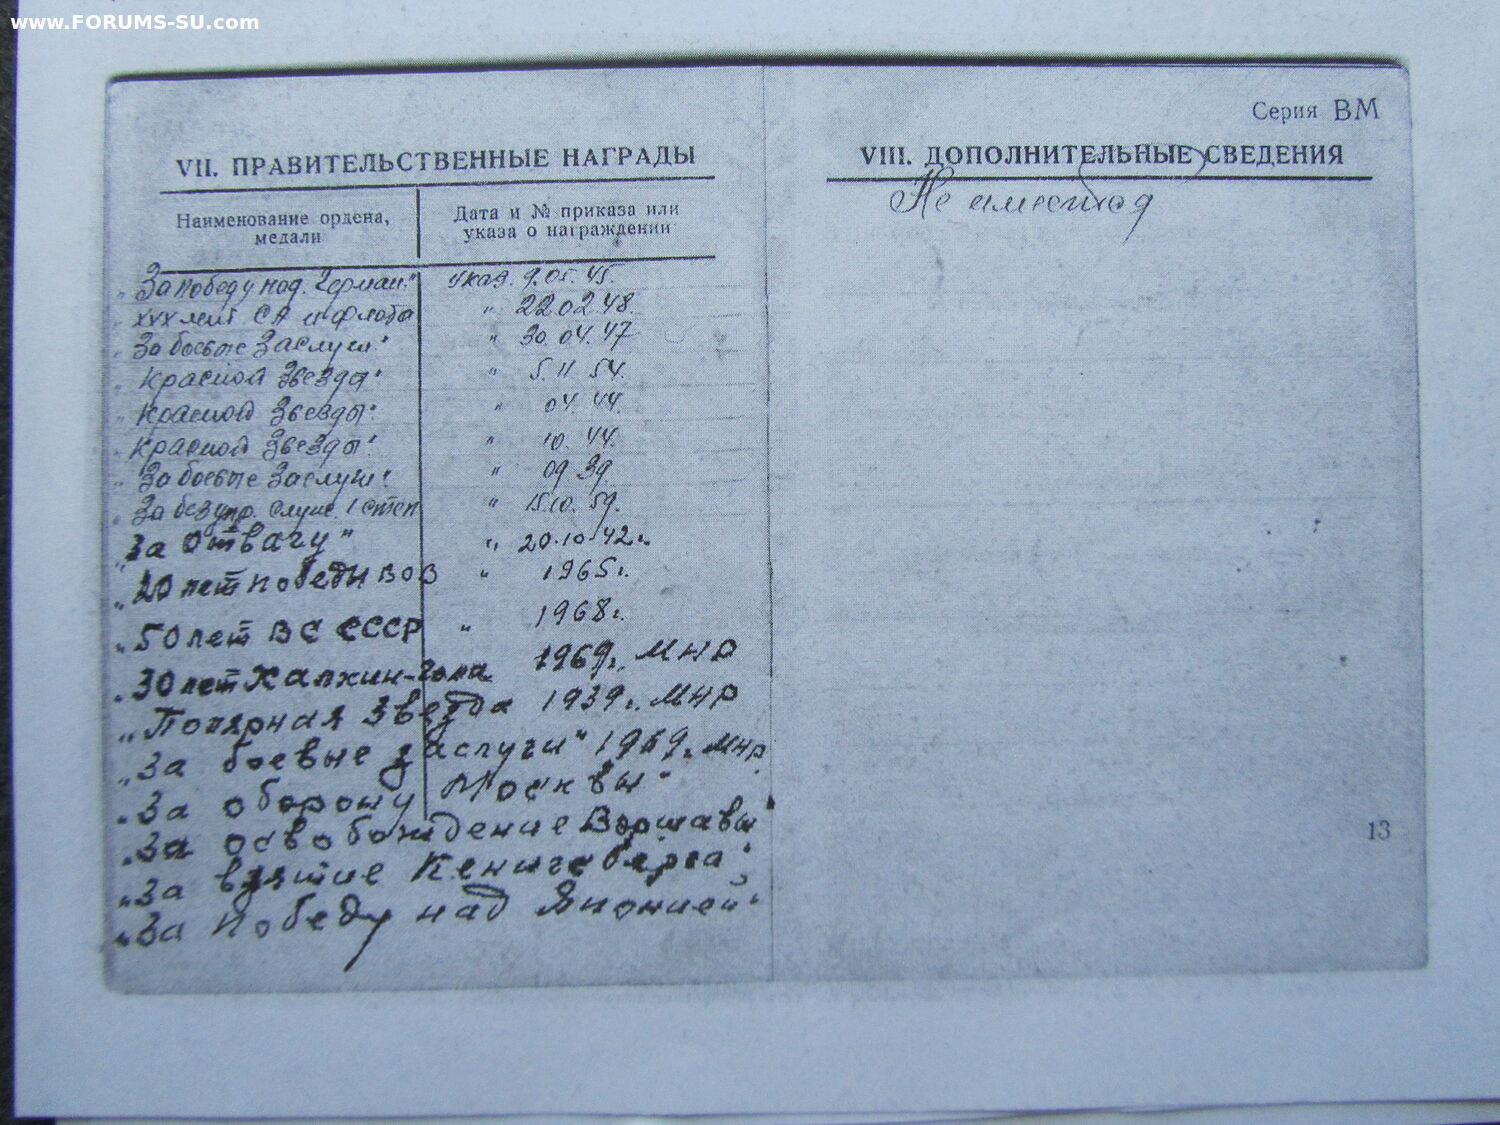 www.FORUMS-SU.com
Серия ВМ
VII. ПРАВИТЕЛЬСТВЕННЫЕ НАГРАДЫ
Наименование ордена, медали
Дата и № приказа или указа о награждении
„За победу над. Герман." указ. 9.05.45.
„ХХХ лет СА и флота " 22.02.48.
„За боевые Заслуги" " 30.04.47
„Красной Звезды" " 5.11 54.
„Красной Звезды" " 04.44.
„Красной Звезды" " 10.44.
„За боевые Заслуги" " 09 39.
„За безупр. служ. 1 степ " 15.10.59.
„За Отвагу" " 20.10.42г.
„20 лет победы ВОВ " 1965г.
„50 лет ВС СССР " 1968г.
„30 лет Халхин-гола 1969г. МНР
„Полярная Звезда 1939г. МНР
„За боевые заслуги" 1969г. МНР
„За оборону Москвы"
„За освобождение Варшавы"
„За взятие Кенигсберга"
„За Победу над Японией"
VIII. ДОПОЛНИТЕЛЬНЫЕ СВЕДЕНИЯ
Не
13